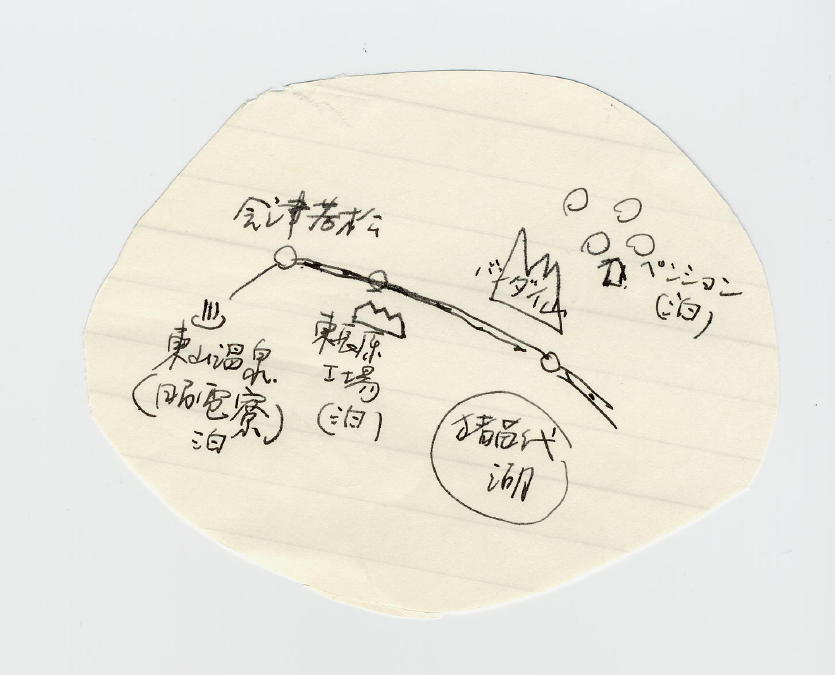 会津若松
バンダイ山
ペンション
(泊)
東山温泉
(昭電寮)
泊
東長原
工場
(泊)
猪苗代
湖